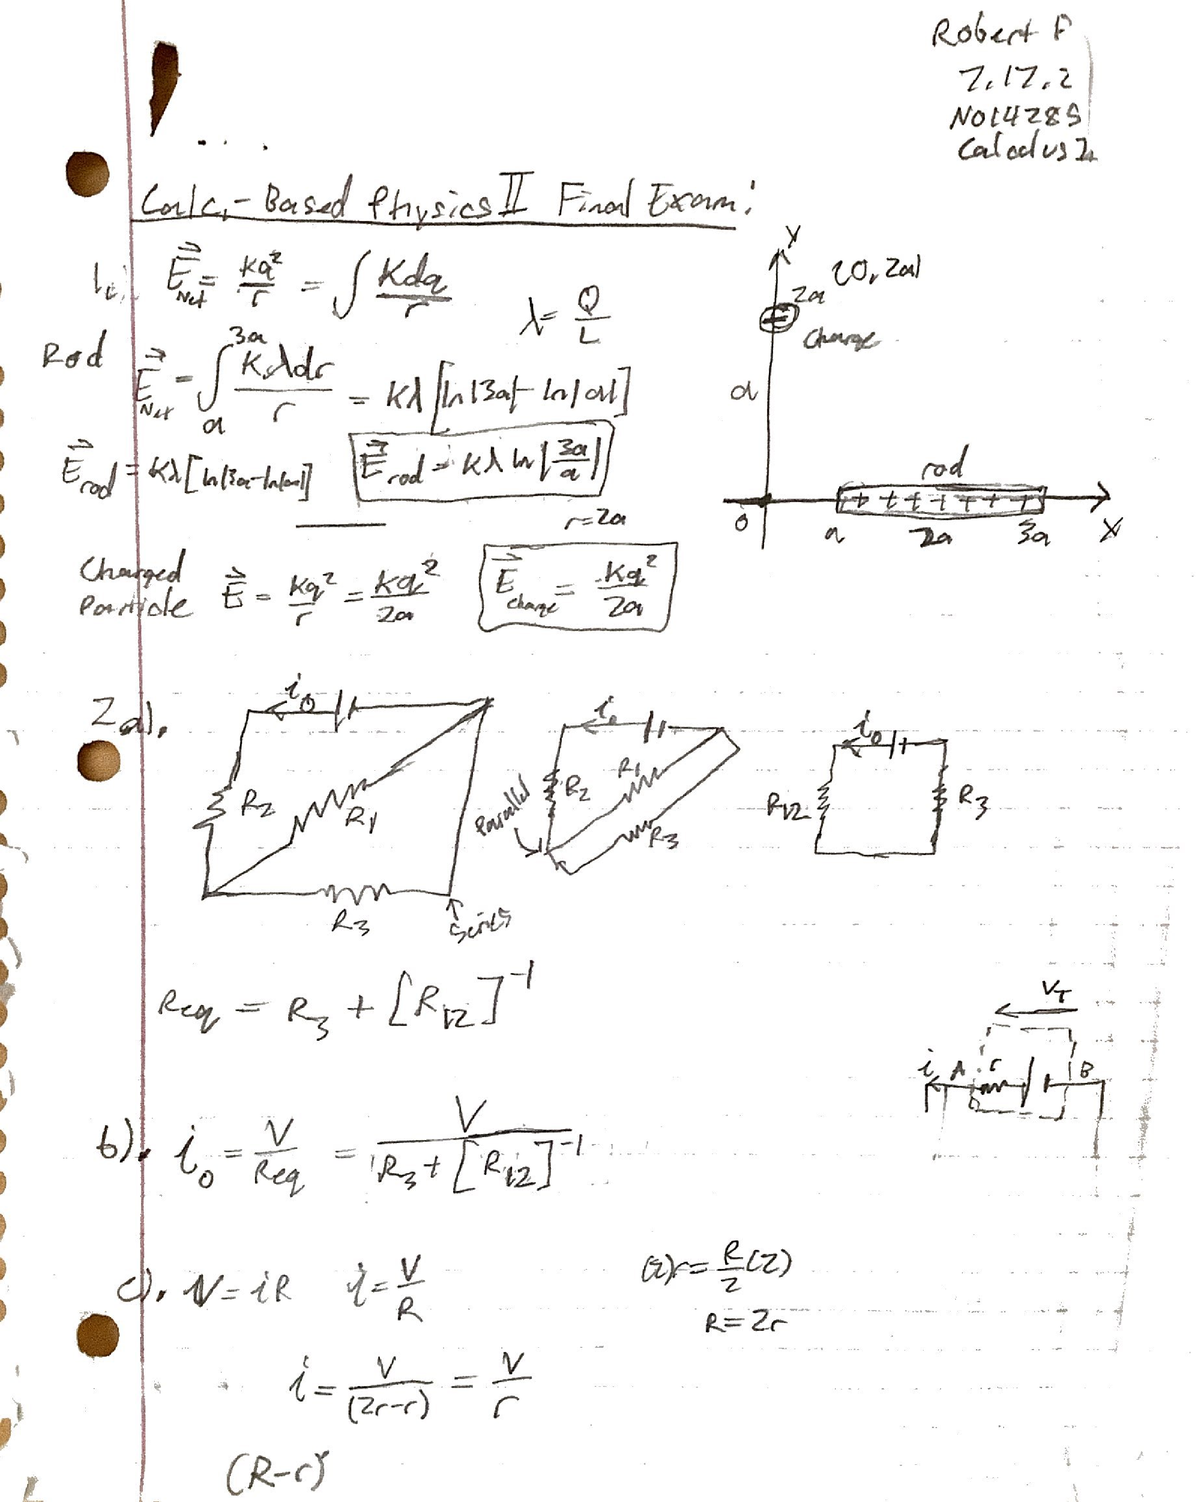 Robert F
7.17.2
N014285
Calculus 2
Calc.-Based Physics II Final Exam:
1.). E⃗Net = kq²/r = ∫ Kdq/r λ = Q/L
Rod E⃗Net = ∫ₐ³ᵃ K λdr/r = Kλ[ln|3a| - ln|a|]
E⃗rod = Kλ[ln|3a-ln|a|] E⃗rod = Kλ ln|3a/a|
r=2a
Charged Particle E⃗ = Kq²/r = Kq²/2a E⃗charge = Kq²/2a
Y
2a (0, 2a)
Charge
a
rod
+ + + + + + +
0 a 2a 3a X
2a).
i₀ R2 R1 R3 Series
i₀ R2 R1 R3 Parallel
i₀ R12 R3
Req = R3 + [R12]⁻¹
VT
i A r B
b). i₀ = V/Req = V/(R3 + [R12]⁻¹)
c). V = iR i = V/R
(2)r = R/2 (2)
R = 2r
i = V/(2r-r) = V/r
(R-r)